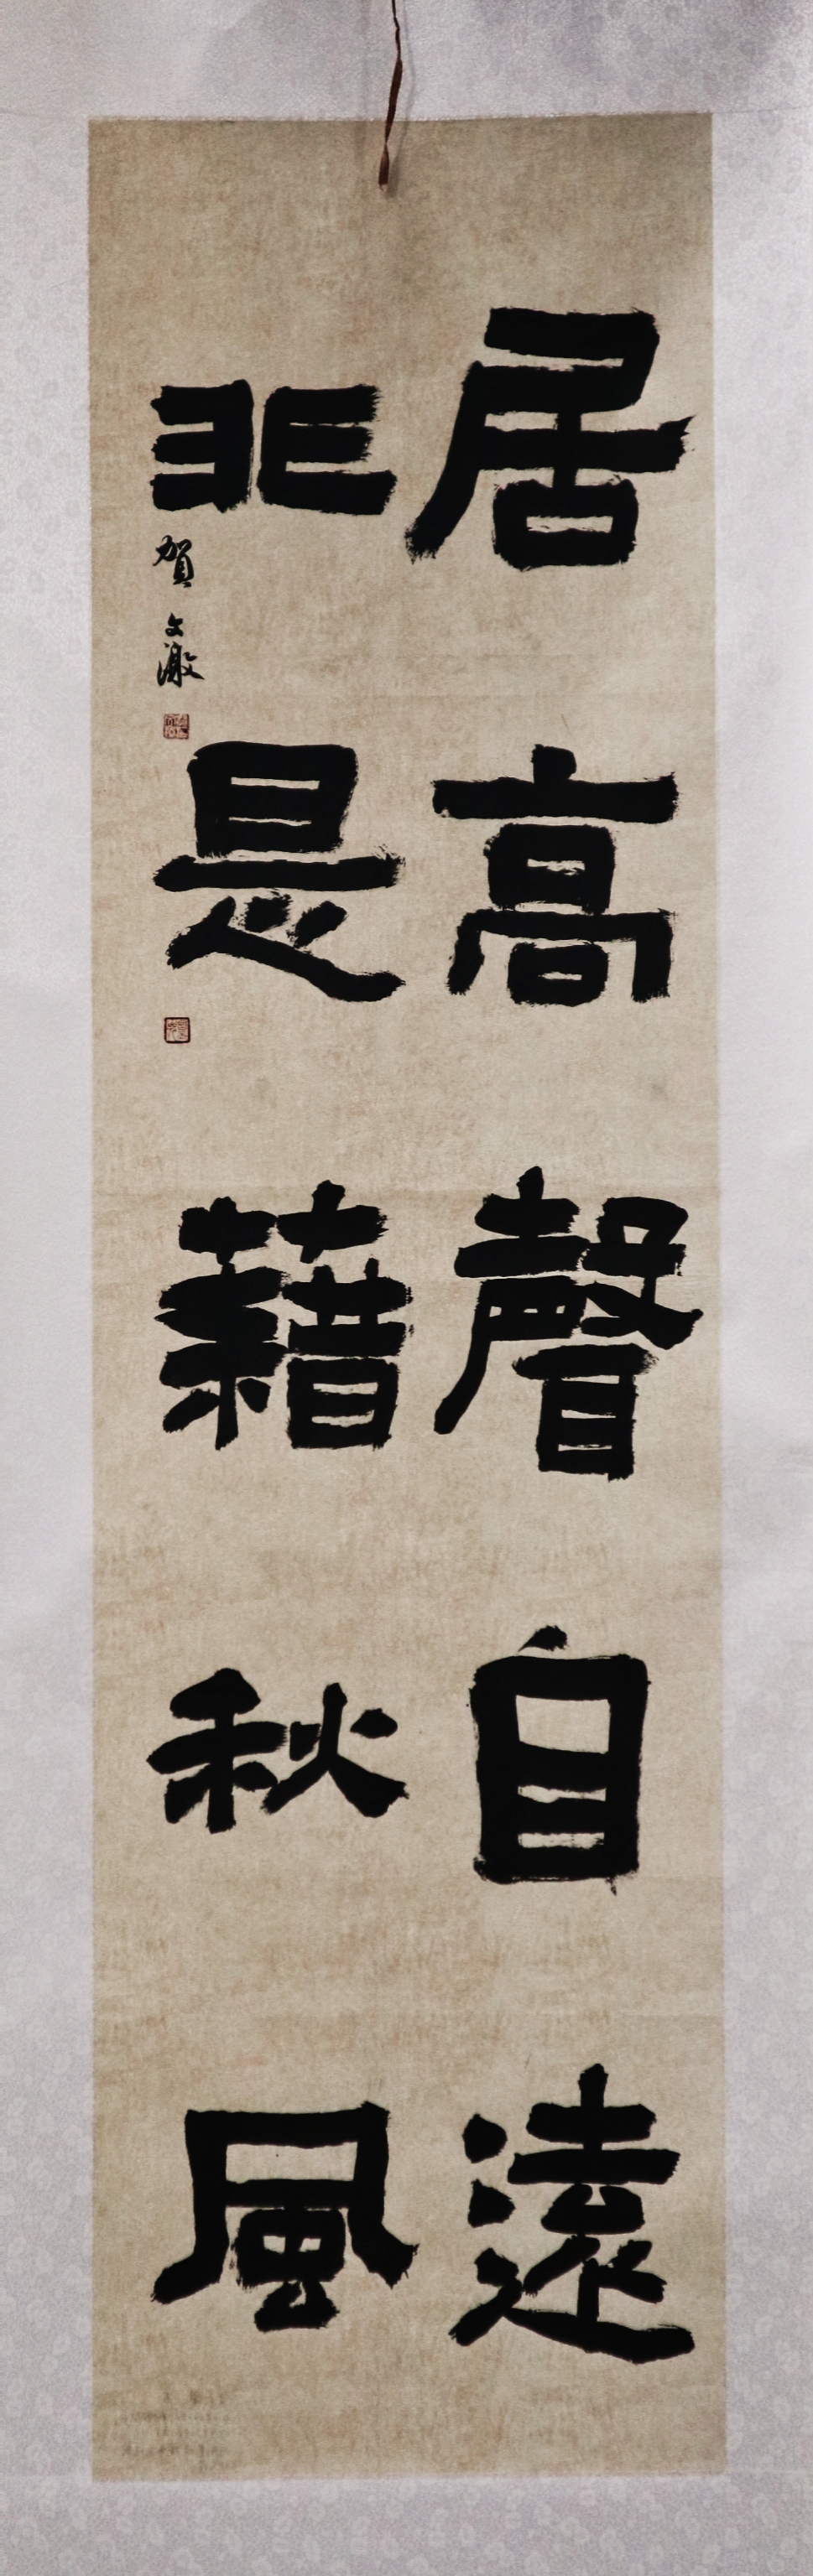 居高聲自遠
非是藉秋風
賀文激